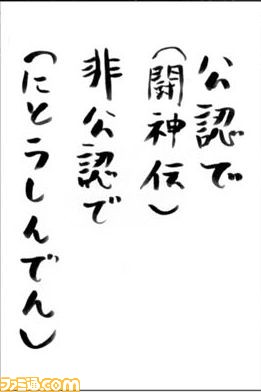 公認で
（闘神伝）
非公認で
（にとうしんでん）
ファミ通.com